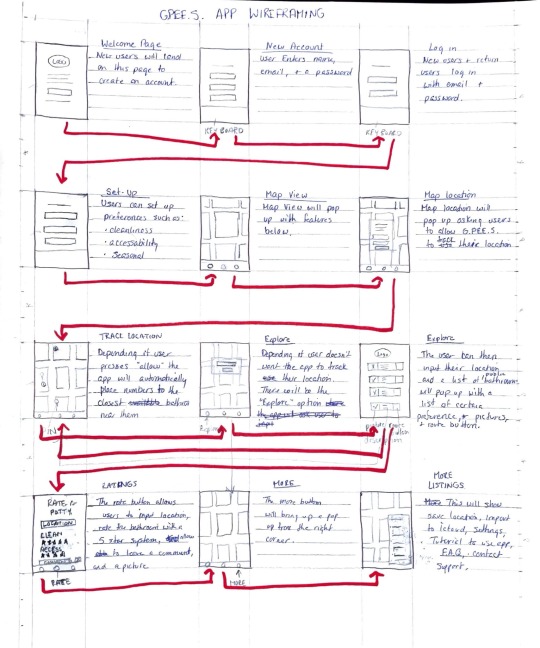 G.PEE.S. APP WIREFRAMING
Welcome Page
New users will land
on this page to
create an account.
LOGO
New Account
User Enters name,
email, + a password
KEYBOARD
Log in
New users + return
users log in
with email +
password.
KEYBOARD
Set-Up
Users can set up
preferences such as:
• cleanliness
• accessability
• seasonal
Map View
Map View will pop
up with features
below.
Map location
Map location will
pop up asking users
to allow G.PEE.S.
to track their location
TRACK LOCATION
Depending if user
presses "allow" the
app will automatically
place numbers to the
closest
near them
PIN
Explore
Depending if user doesn't
want the app to track
their location.
There will be the
"Explore" option
Logo
Explore
The user can then
input their location
and a list of public bathrooms
will pop up with a
list of certain
preference, + pictures,
+ route button.
RATINGS
The rate button allows
users to input location,
rate the bathroom with a
5 star system, allow
to leave a comment,
and a picture
RATE A
POTTY
LOCATION
CLEAN
★★★★★
ACCESS
★★★★
COMMENTS
RATE
MORE
The more button
will bring up a pop
up from the right
corner.
MORE
MORE
LISTINGS
This will show
save location, logout
to icloud, settings,
Tutorial to use app,
F.A.Q, contact
Support.